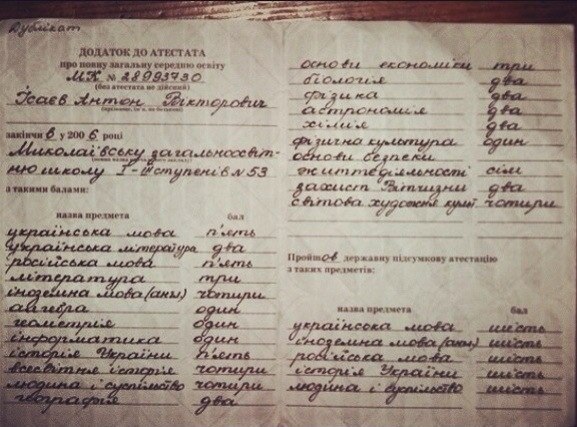 Дублікат
ДОДАТОК ДО АТЕСТАТА
про повну загальну середню освіту
МК № 28993730
(без атестата не дійсний)
Ісаєв Антон Вікторович
(прізвище, ім'я, по батькові)
закінчив у 2006 році
Миколаївську загальноосвіт-
ню школу І-ІІІ ступенів №53
з такими балами:
назва предмета бал
українська мова п'ять
українська література два
російська мова п'ять
література три
іноземна мова (англ) чотири
алгебра один
геометрія один
інформатика один
історія України п'ять
всесвітня історія чотири
людина і суспільство чотири
географія два
основи економіки три
біологія два
фізика два
астрономія два
хімія два
фізична культура один
основи безпеки
життєдіяльності сім
захист Вітчизни два
світова художня культ чотири
Пройшов державну підсумкову атестацію
з таких предметів:
назва предмета бал
українська мова шість
іноземна мова (англ) шість
російська мова шість
історія України шість
людина і суспільство шість